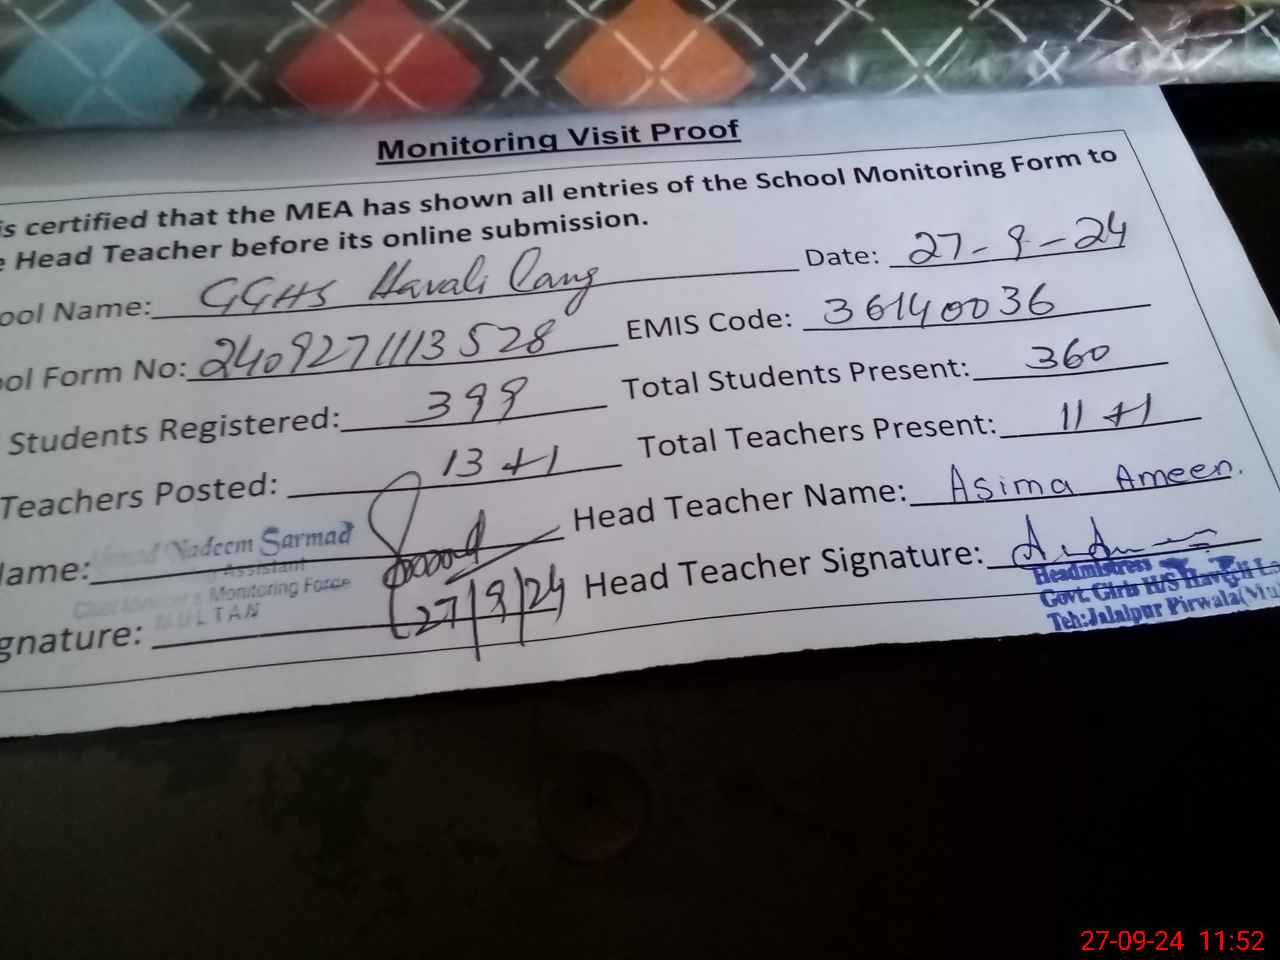 Monitoring Visit Proof
is certified that the MEA has shown all entries of the School Monitoring Form to
e Head Teacher before its online submission.
ool Name: GGHS Havali Lang Date: 27-9-24
ool Form No: 2409271113528 EMIS Code: 36140036
Students Registered: 399 Total Students Present: 360
Teachers Posted: 13+1 Total Teachers Present: 11+1
ame: Nadeem Sarmad Head Teacher Name: Asima Ameen.
Assistant
Monitoring Force
MULTAN
gnature: 27/9/24 Head Teacher Signature:
Headmistress
Govt. Girls H/S Haveli La
Teh: Jalalpur Pirwala (Mul
27-09-24 11:52